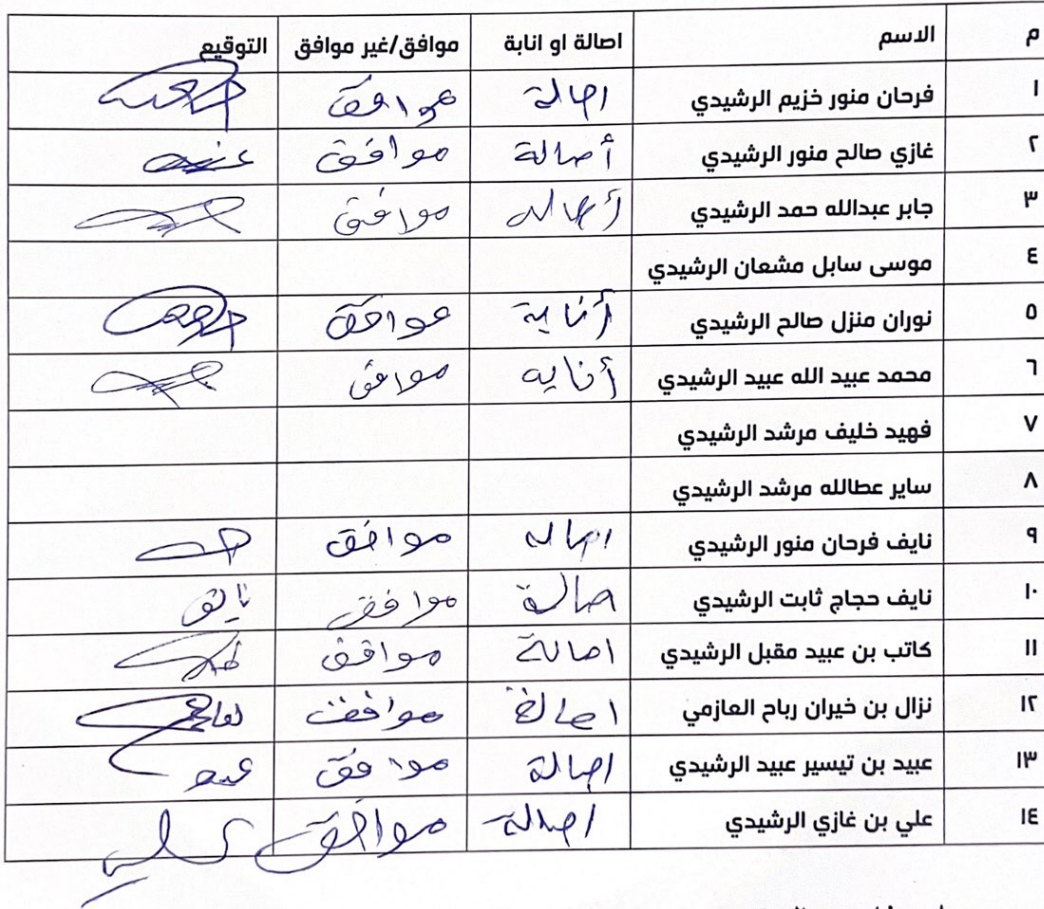 م الاسم اصالة او انابة موافق/غير موافق التوقيع
١ فرحان منور خزيم الرشيدي اصالة موافق
٢ غازي صالح منور الرشيدي أصالة موافق
٣ جابر عبدالله حمد الرشيدي أصاله موافق
٤ موسى سابل مشعان الرشيدي
٥ نوران منزل صالح الرشيدي أنابة موافق
٦ محمد عبيد الله عبيد الرشيدي أنابه موافق
٧ فهيد خليف مرشد الرشيدي
٨ ساير عطالله مرشد الرشيدي
٩ نايف فرحان منور الرشيدي اصاله موافق
١٠ نايف حجاج ثابت الرشيدي اصالة موافق نايف
١١ كاتب بن عبيد مقبل الرشيدي اصالة موافق
١٢ نزال بن خيران رباح العازمي اصالة موافق
١٣ عبيد بن تيسير عبيد الرشيدي اصالة موافق
١٤ علي بن غازي الرشيدي اصالة موافق